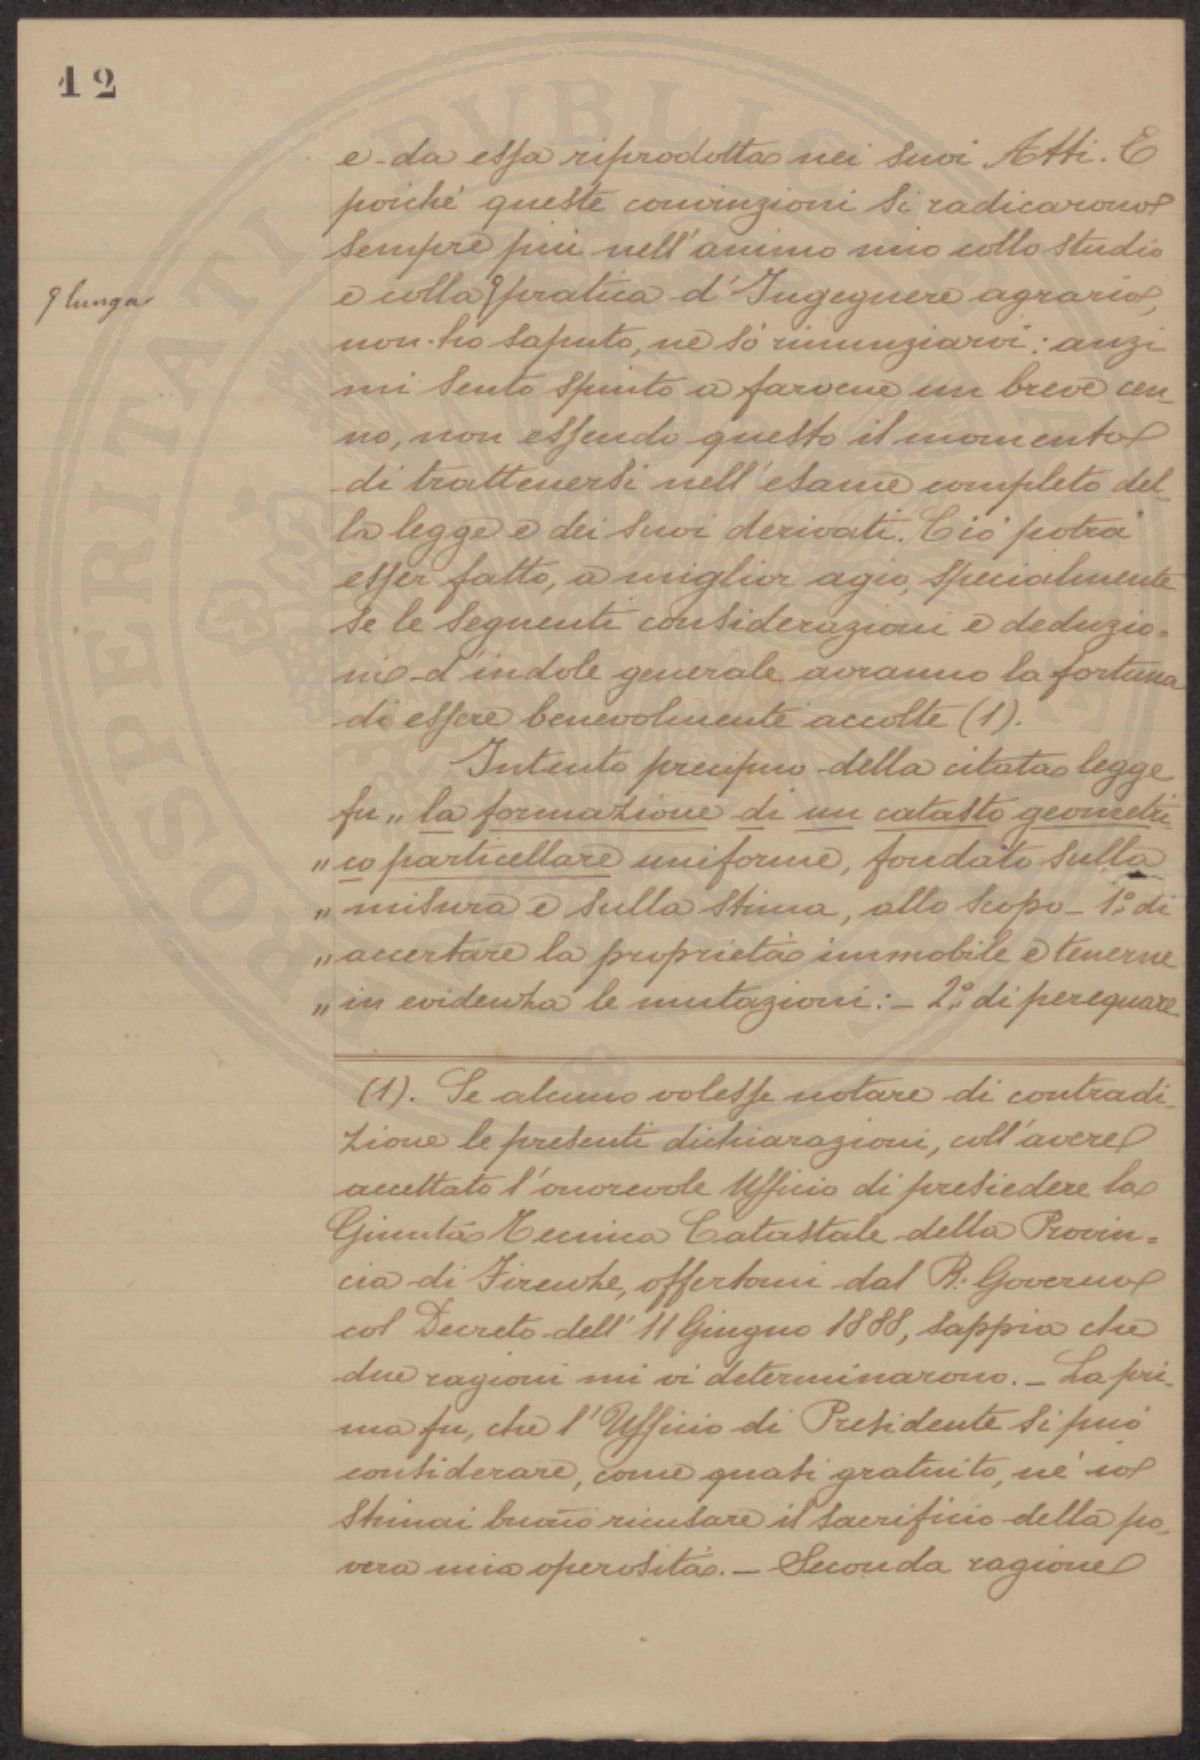 12
e da essa riprodotta nei suoi Atti. E
poichè queste convinzioni si radicarono
sempre più nell'animo mio collo studio
e colla pratica d'Ingegnere agrario,
lunga
non ho saputo, nè sò rinunziarvi: anzi
mi sento spinto a farvene un breve cen-
no, non essendo questo il momento
di trattenersi nell'esame completo del-
la legge e dei suoi derivati. Ciò potrà
esser fatto, a miglior agio, specialmente
se le seguenti considerazioni e deduzio=
ni d'indole generale avranno la fortuna
di essere benevolmente accolte (1).
Intento precipuo della citata legge
fu „ la formazione di un catasto geometri-
„ co particellare uniforme, fondato sulla
„ misura e sulla stima, allo scopo - 1.° di
„ accertare la proprietà immobile e tenerne
„ in evidenza le mutazioni: - 2.° di perequare
(1). Se alcuno volesse notare di contradi-
zione le presenti dichiarazioni, coll'avere
accettato l'onorevole Ufficio di presiedere la
Giunta Tecnica Catastale della Provin=
cia di Firenze, offertomi dal R. Governo
col Decreto dell'11 Giugno 1888, sappia che
due ragioni mi vi determinarono. - La pri-
ma fu, che l'Ufficio di Presidente si può
considerare, come quasi gratuito, nè io
stimai buono ricusare il sacrificio della po-
vera mia operosità. - Seconda ragione
PROSPERITATI PUBLICAE